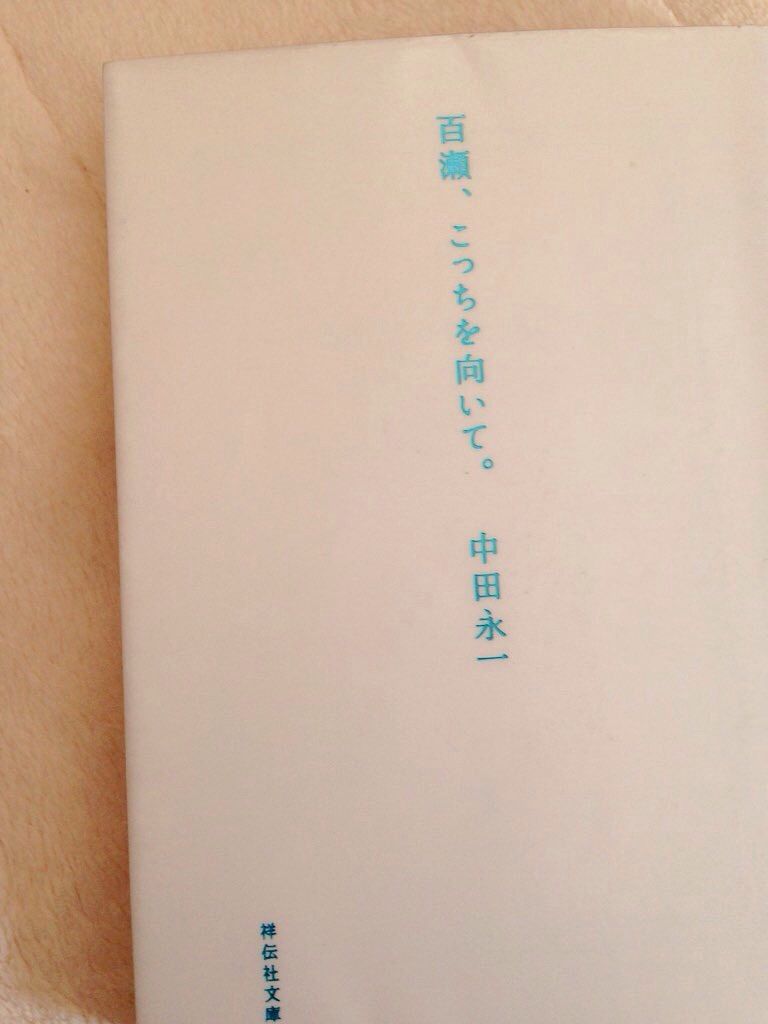 百瀬、こっちを向いて。　中田永一
祥伝社文庫